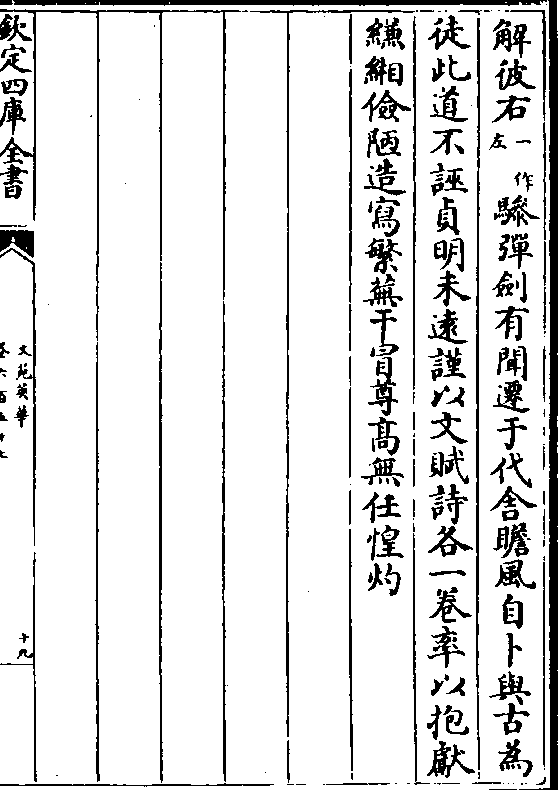 解彼右一作左驂彈劍有聞遷于代舎瞻風自卜與古為
徒此道不誣貞明未遠謹以文賦詩各一卷率以抱獻
縑緗儉陋造寫繁蕪干冒尊高無任惶灼
欽定四庫全書
文苑英華
十九